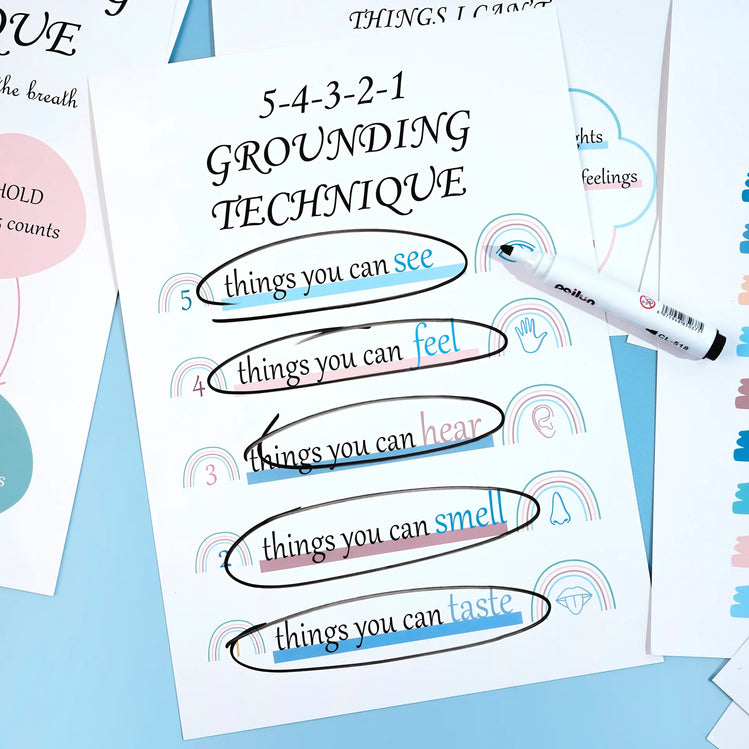 QUE
the breath
HOLD
5 counts
s
THINGS I CAN'T
5-4-3-2-1
GROUNDING
TECHNIQUE
5 things you can see
4 things you can feel
3 things you can hear
2 things you can smell
things you can taste
feelings
CL-518